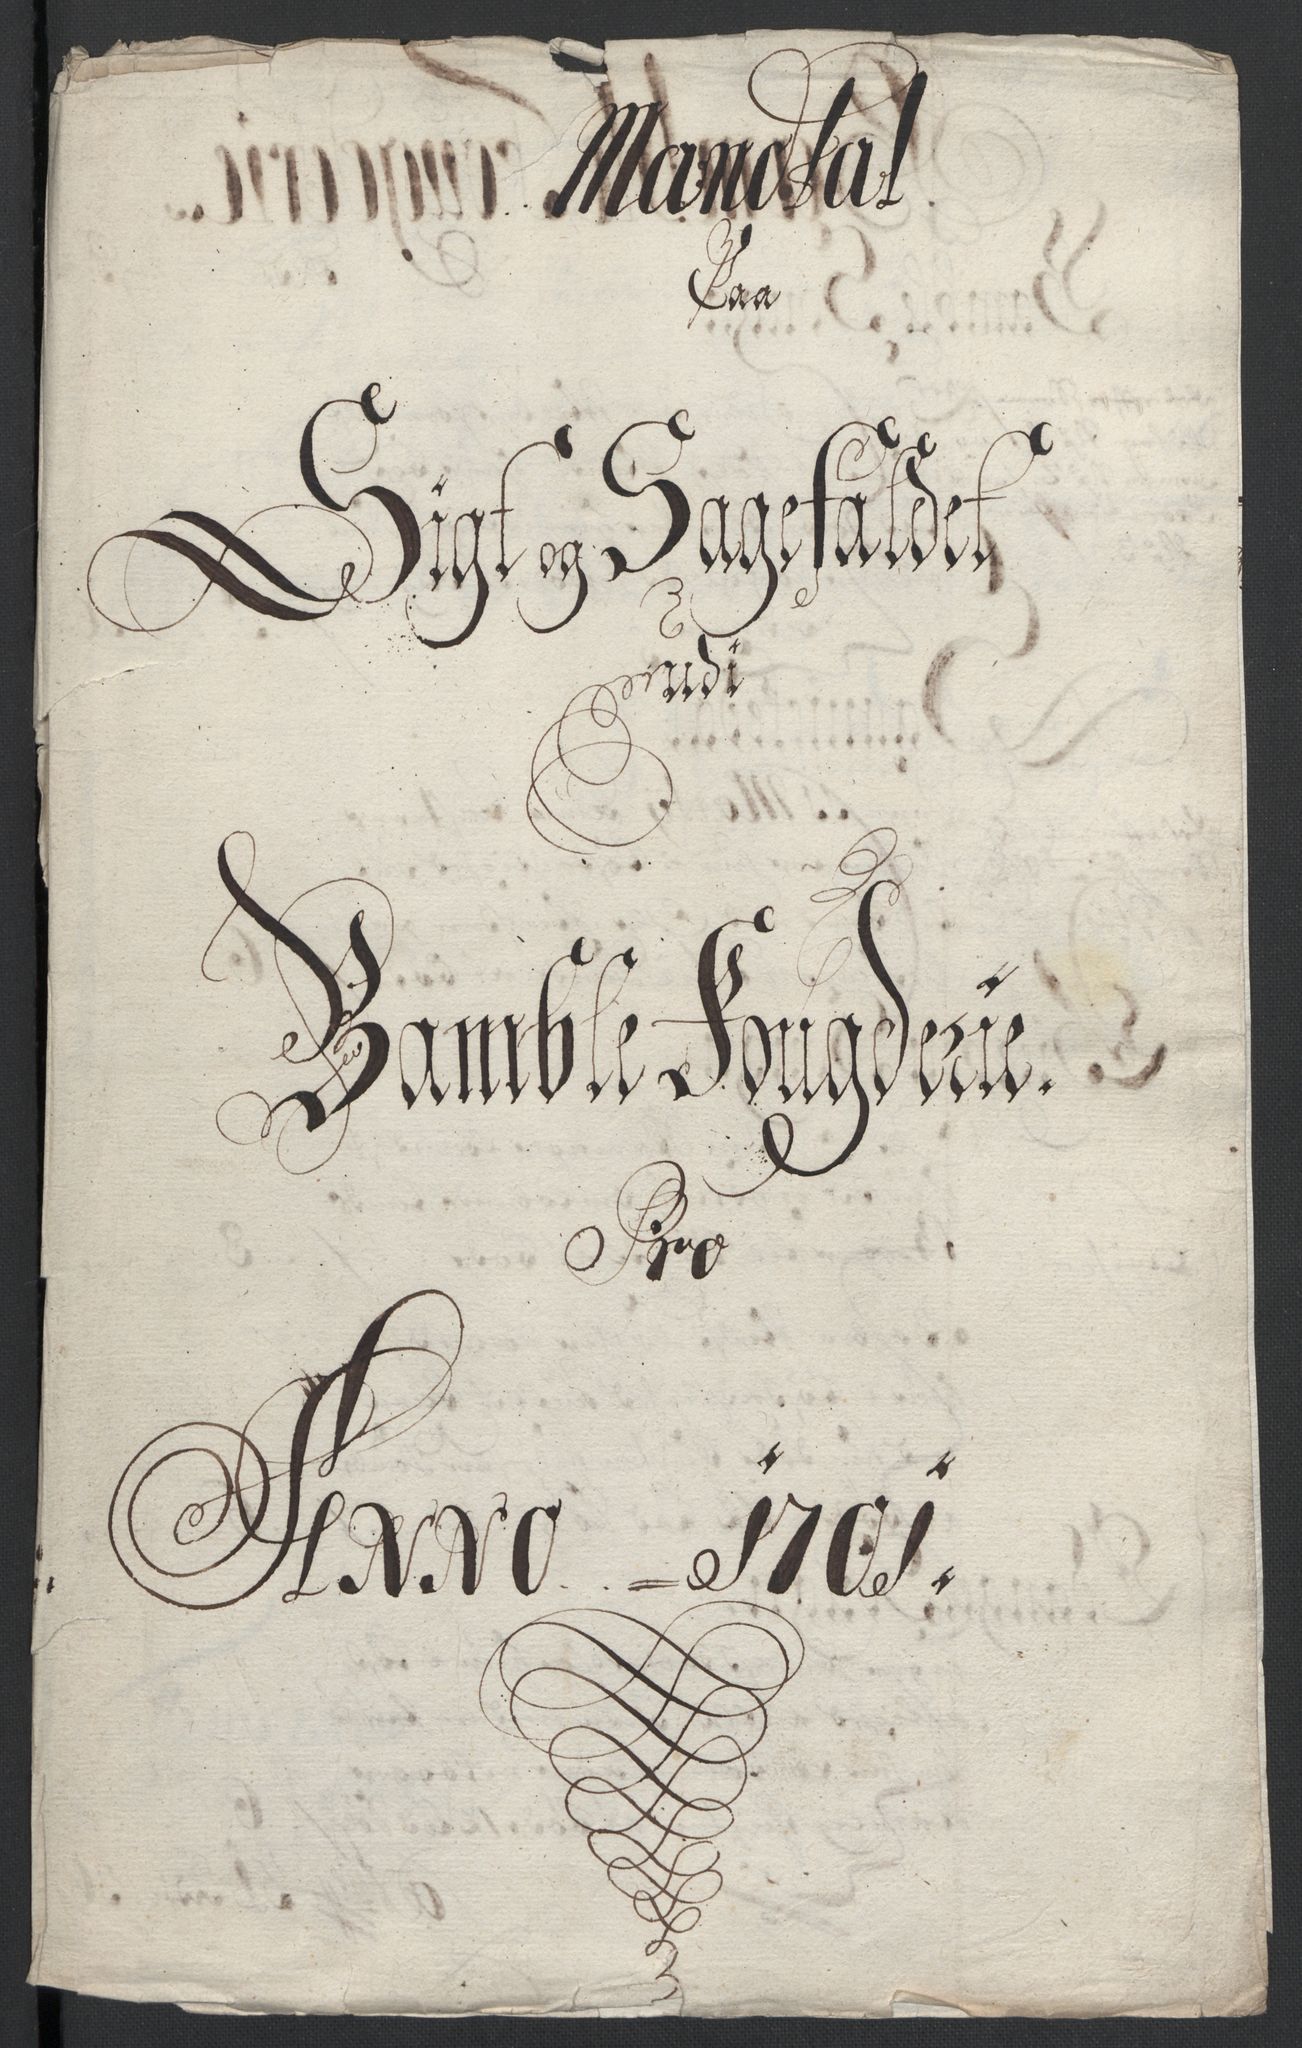 Mandtal
Paa
Sigt og Sagefaldet
Udi
Bamble Fougderie.
Pro
Anno = 1701.